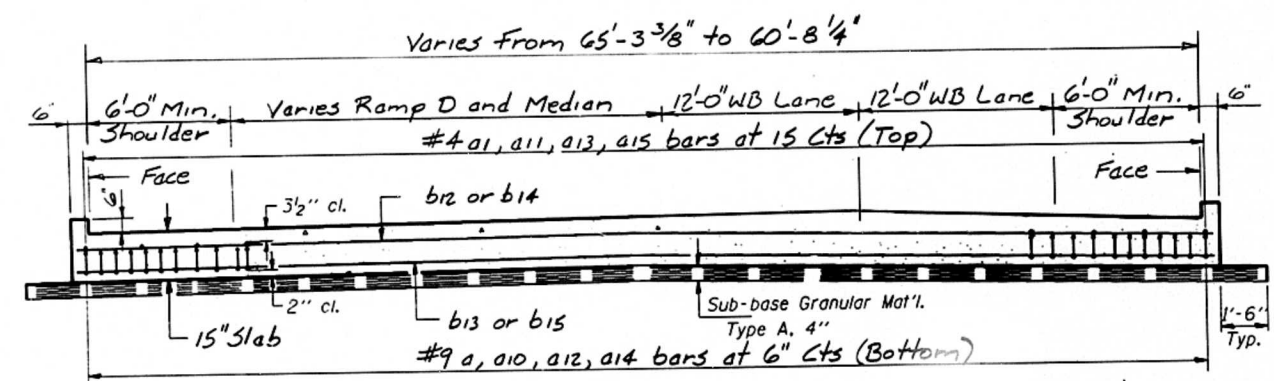 Varies From 65'-3 3/8" to 60'-8 1/4"
6" 6'-0" Min. Shoulder Varies Ramp D and Median 12'-0" WB Lane 12'-0" WB Lane 6'-0" Min. Shoulder 6"
#4 a1, a11, a13, a15 bars at 15 Cts (Top)
Face
Face
6"
3½" cl.
b12 or b14
2" cl.
b13 or b15
Sub-base Granular Mat'l.
Type A, 4"
1'-6"
Typ.
15" Slab
#9 a, a10, a12, a14 bars at 6" Cts (Bottom)